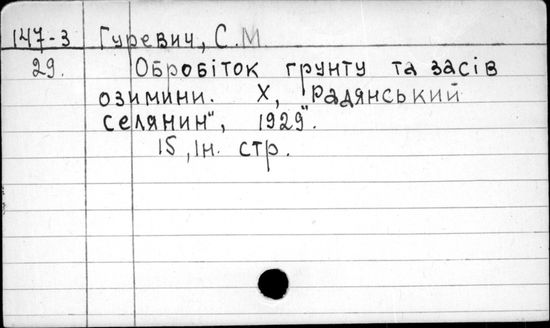 147-3 Гуревич, С.М.
29. Обробіток грунту та засів
озимини. Х, "Радянський
селянин", 1929".
15, Ін. стр.